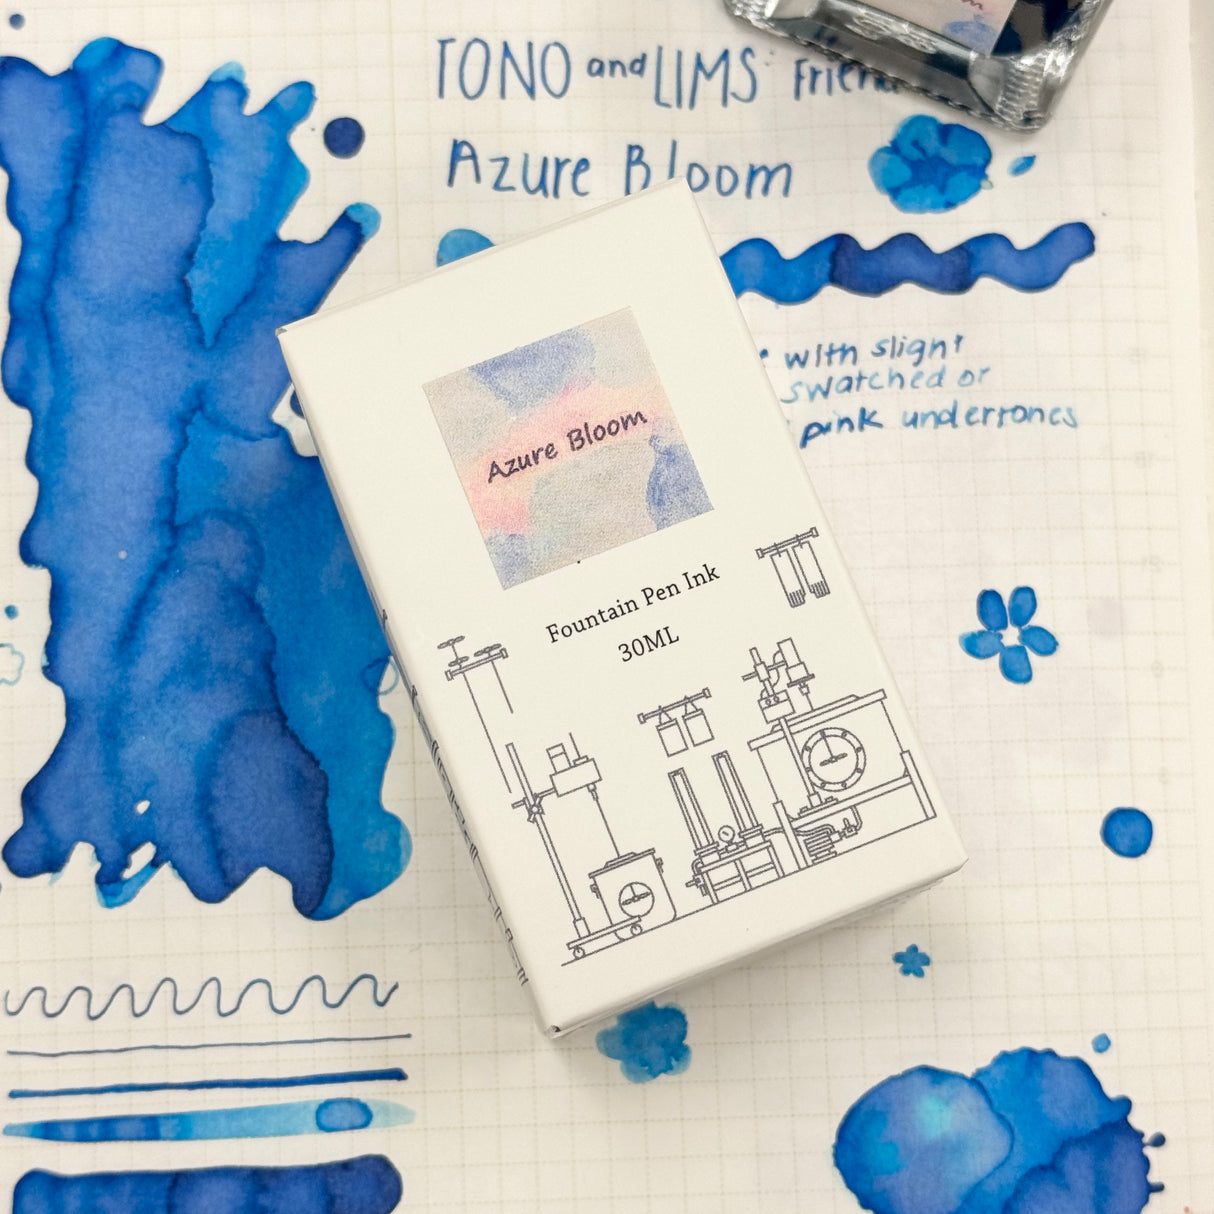 TONO and LIMS
Azure Bloom
with slight
swatched or
pink undertones
Azure Bloom
Fountain Pen Ink
30ML